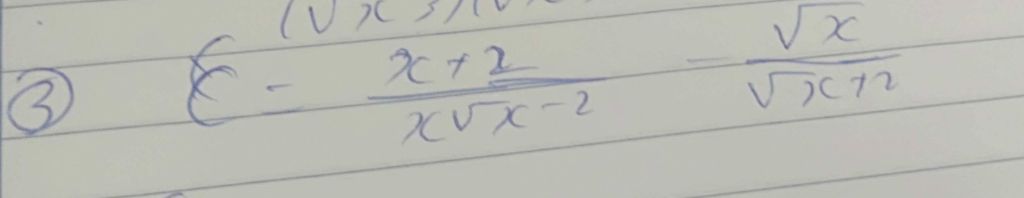 ③ E = \frac{x+2}{x\sqrt{x}-2} - \frac{\sqrt{x}}{\sqrt{x}+2}